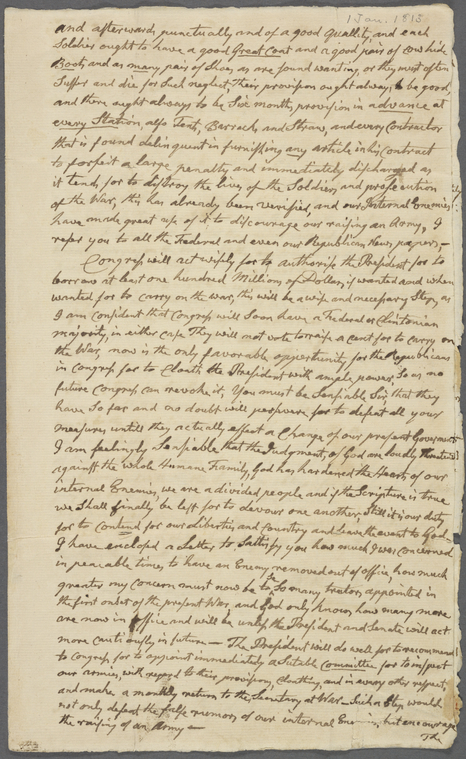 1 Jan. 1813
and afterwards punctually and of a good quallity, and each
Soldier ought to have a good Great Coat and a good pair of Cow hide
Boots and as many pair of Shoes as are found wanting, or they must often
Suffer and die for Such neglect, their provision ought always to be good,
and there ought always to be Six months provision in advance at
every Station, also Tents, Barracks, and Straw, and every Contractor
that is found delinquent in furnishing any article in his Contract
to forfeit a large penalty and immediately discharged as
it tends for to distroy the lives of the Soldiers and prosecution
of the War, this has already been verified, and our Internal Enemies
have made great use of it to discourage our raising an Army, I
refer you to all the Federal and even our Republican News papers,—
Congress will act wisely for to authorise the President for to
borrow at least one hundred Millions of Dollars, if wanted and when
wanted for to carry on the war, this will be a wise and necessary Step, as
I am confident that Congress will Soon have a Federal or Clintonian
majority, in either case They will not vote to raise a cent for to carry on
the War, now is the only favorable opportunity, for the Republicans
in Congress for to Cloath the President with ample power, So as no
future Congress can revoke it, You must be Sensiable Sir, that they
have So far and no doubt will persevere for to defeat all your
measures until they actually effect a Change of our present Government
I am feelingly Sensiable that the Judgments of God are loudly threatned
against the whole Humane Family, God has hardened the Hearts of our
internal Enemies, we are a divided people and if the Scripture is true
we Shall finally be left for to devour one another, Still it is our duty
for to contend for our liberties and Country and leave the event to God,
I have enclosed a Letter, to Sattisfy you how much I was concerned
in peacable times to have an Enemy removed out of office, how much
greater my Concern must now be to See So many traitors appointed in
the first onset of the present War, and God only knows how many more
are now in office and will be unless the President and Senate will act
more cautiously in future— The President will do well for to recommend
to Congress for to appoint immediately a Sutable committee for to inspect
our armies, with regard to their provision, cloathing, and in every other respect,
and make a monthly return to the Secretary at War—Such a Step would
not only defeat the false rumors of our internal Enemies, but encourage
the raising of an Army—
The